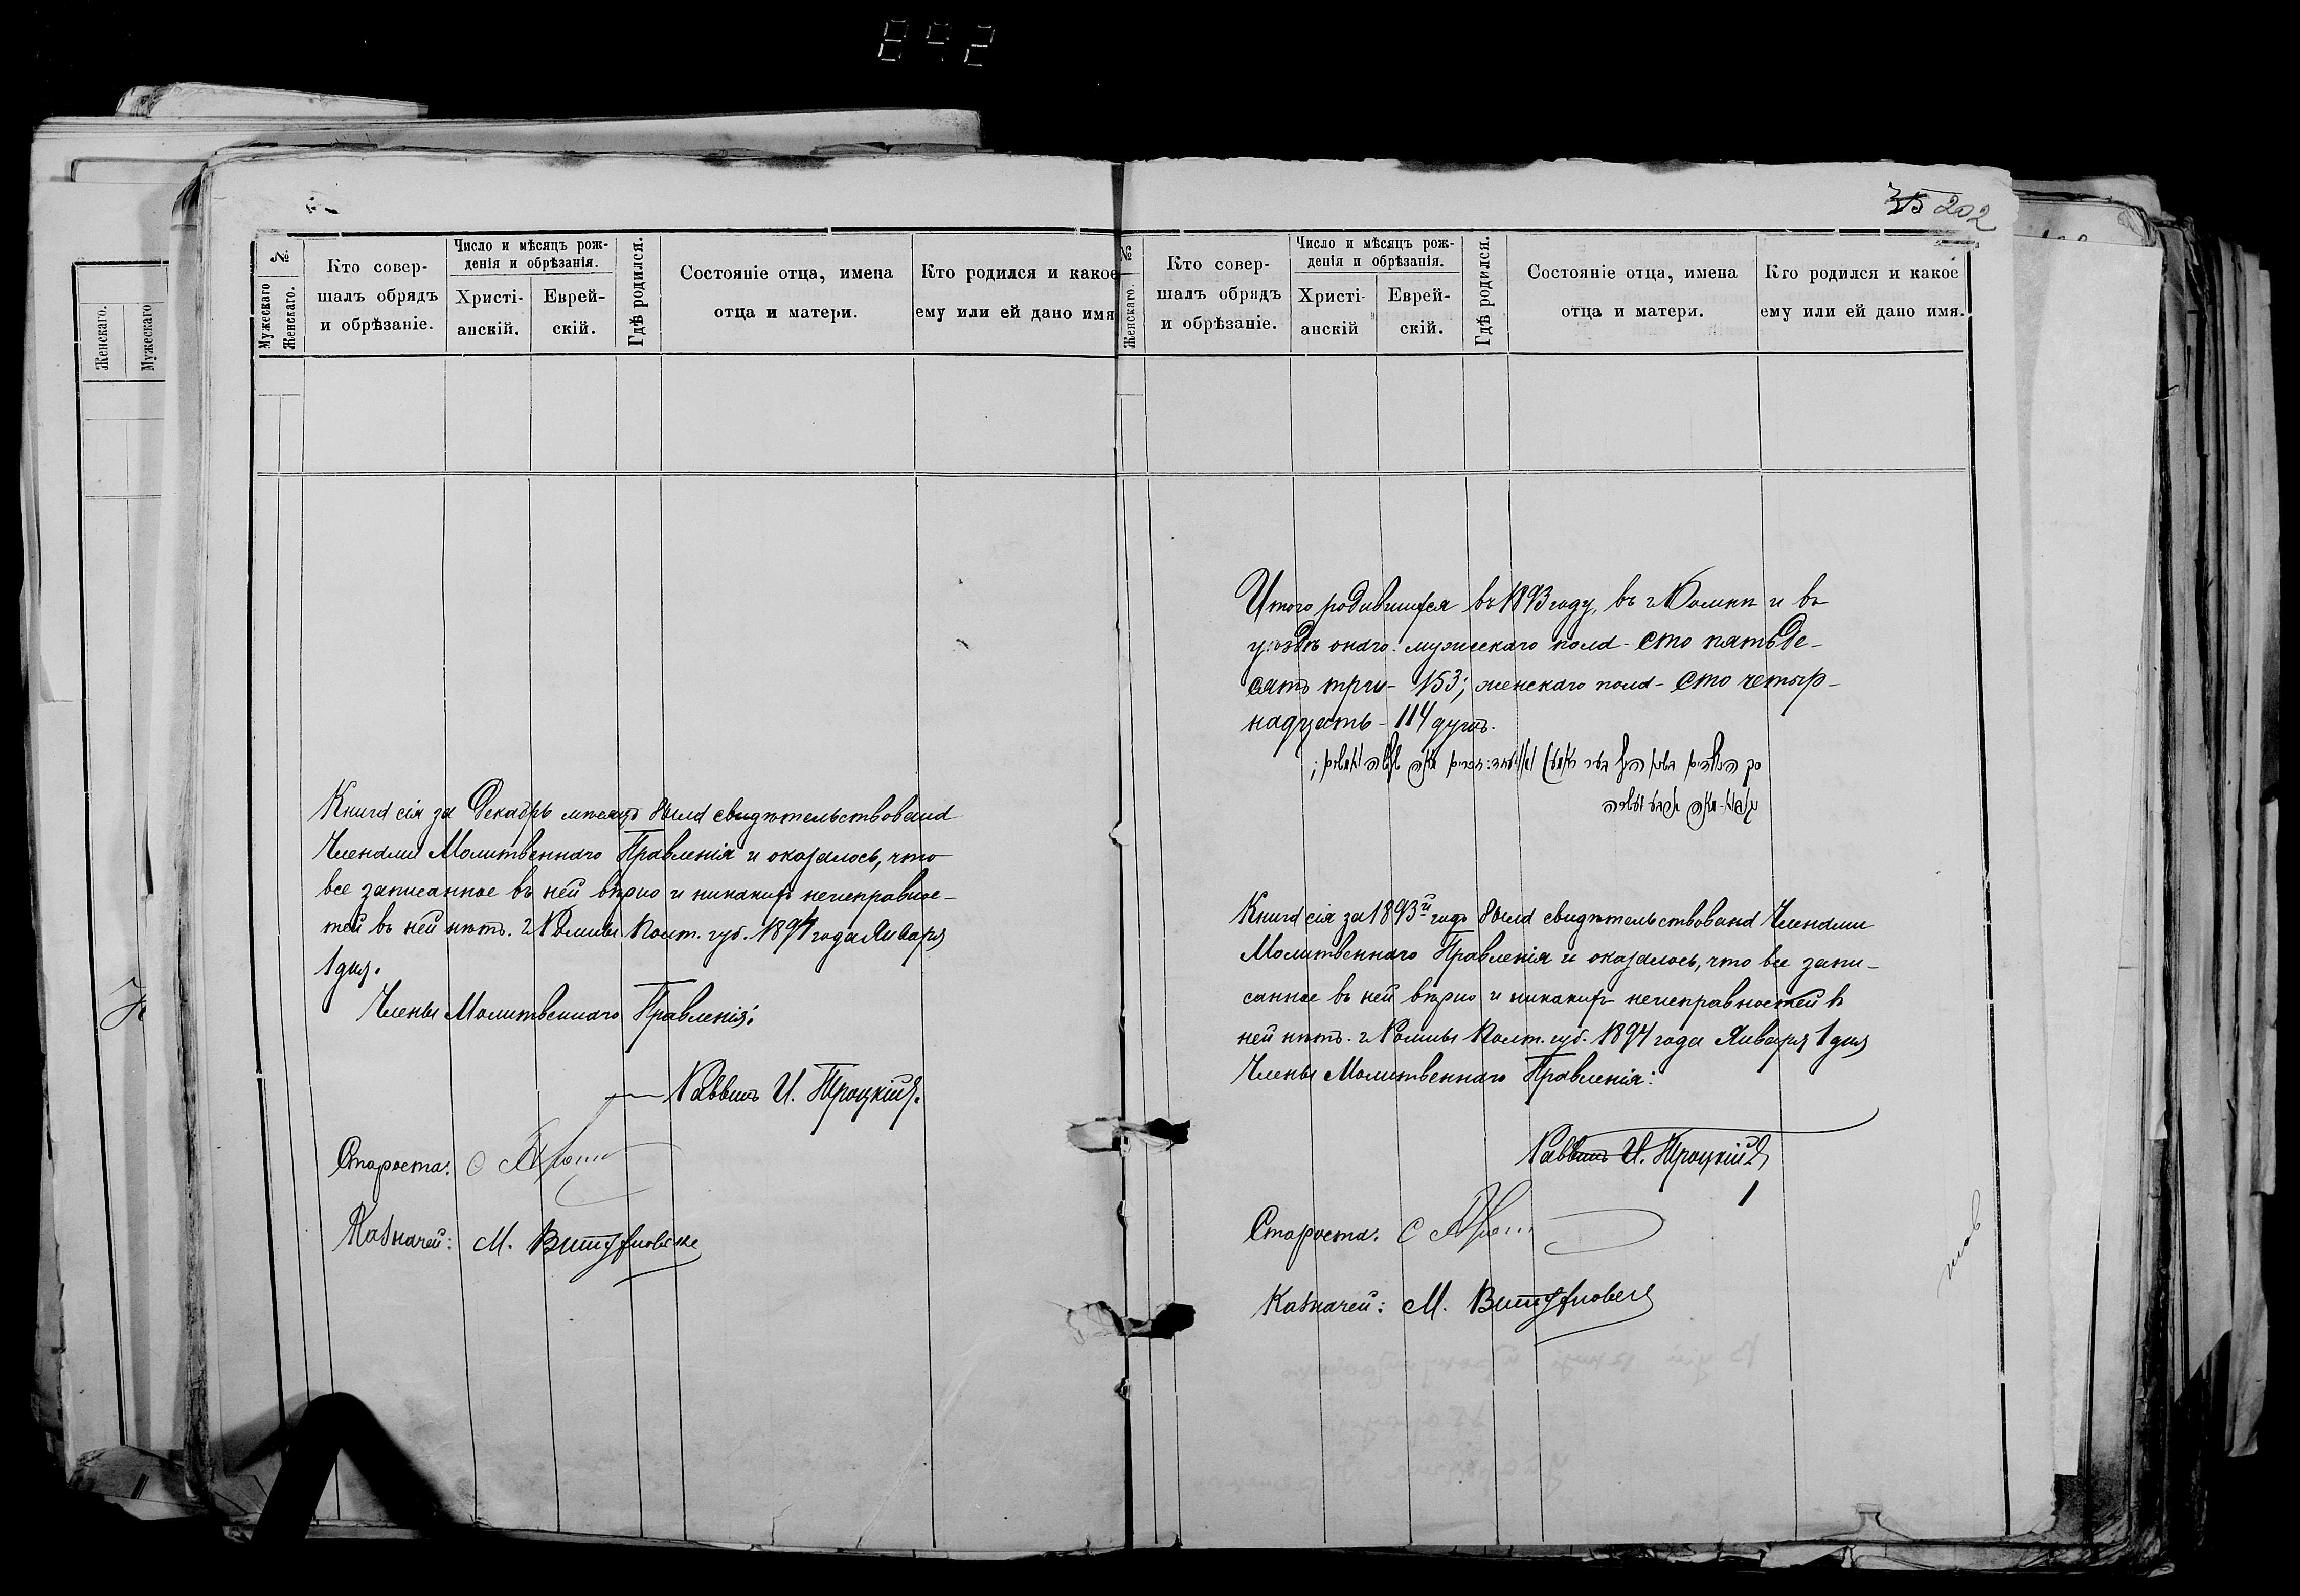 842
35 202
№
Мужескаго
Женскаго.
Кто совер-
шалъ обрядъ
и обрѣзаніе.
Число и мѣсяцъ рож-
денія и обрѣзанія.
Христі-
анскій.
Еврей-
скій.
Гдѣ родился.
Состояніе отца, имена
отца и матери.
Кто родился и какое
ему или ей дано имя
Книга сія за Декабрь мѣсяцъ была свидѣтельствована
Членами Молитвеннаго Правленія и оказалось, что
все записанное въ ней вѣрно и никакихъ неисправнос-
тей въ ней нѣтъ. г Ромны Полт. губ. 1894 года Января
1 дня.
Члены Молитвеннаго Правленія:
Раввинъ И. Троцкій.
Староста:
Казначей: М.
№
Женскаго.
Кто совер-
шалъ обрядъ
и обрѣзаніе.
Число и мѣсяцъ рож-
денія и обрѣзанія.
Христі-
анскій
Еврей-
скій.
Гдѣ родился.
Состояніе отца, имена
отца и матери.
Кто родился и какое
ему или ей дано имя.
Итого родившихся въ 1893 году, въ г Ромнѣ и въ
уѣздѣ онаго: мужескаго пола - сто пятьде-
сятъ три - 153; женскаго пола - сто четыр-
надцать - 114 душъ.
Книга сія за 1893й годъ была свидѣтельствована Членами
Молитвеннаго Правленія и оказалось, что все запи-
санное въ ней вѣрно и никакихъ неисправностей въ
ней нѣтъ. г Ромны Полт. губ. 1894 года Января 1 дня
Члены Молитвеннаго Правленія:
Раввинъ И. Троцкій
Староста:
Казначей: М.
Женскаго.
Мужескаго